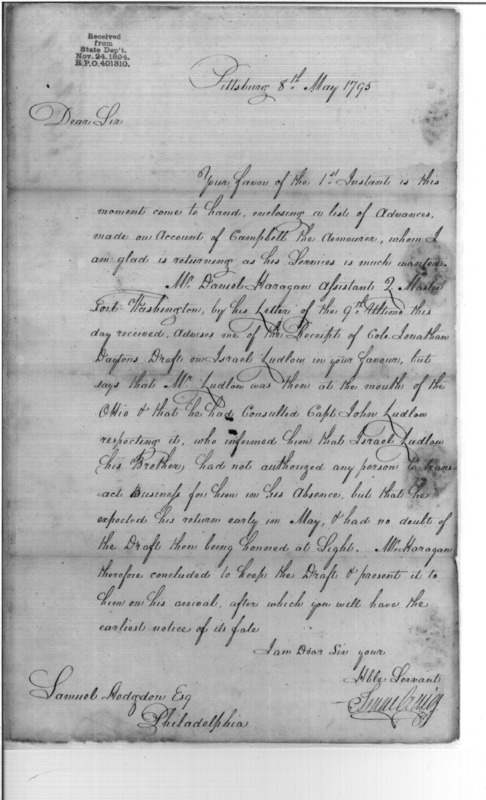 Received
from
State Dep't.
Nov. 24, 1894.
R.P.O. 401310.
Pittsburg 8th May 1795
Dear Sir
Your favor of the 1st Instant is this
moment come to hand, enclosing a list of Advances,
made on Account of Campbell the Armourer, whom I
am glad is returning as his Services is much wanted.
Mr Daniel Haragan Assistant Q Master
Fort Washington, by his Letter of the 9th Ultimo this
day received, Advises me of the Receipt of Colo. Jonathan
Daytons Draft on Israel Ludlow in your favour, but
says that Mr Ludlow was then at the mouth of the
Ohio & that he had Consulted Capt John Ludlow
respecting it, who informed him that Israel Ludlow
(his Brother) had not authorized any person to trans-
act Business for him in his Absence, but that he
expected his return early in May, & had no doubt of
the Draft then being honored at Sight. Mr Haragan
therefore concluded to keep the Draft & present it to
him on his arrival, after which you will have the
earliest notice of its fate
I am Dear Sir your
Hble Servant
Isaac Craig
Samuel Hodgdon Esq
Philadelphia